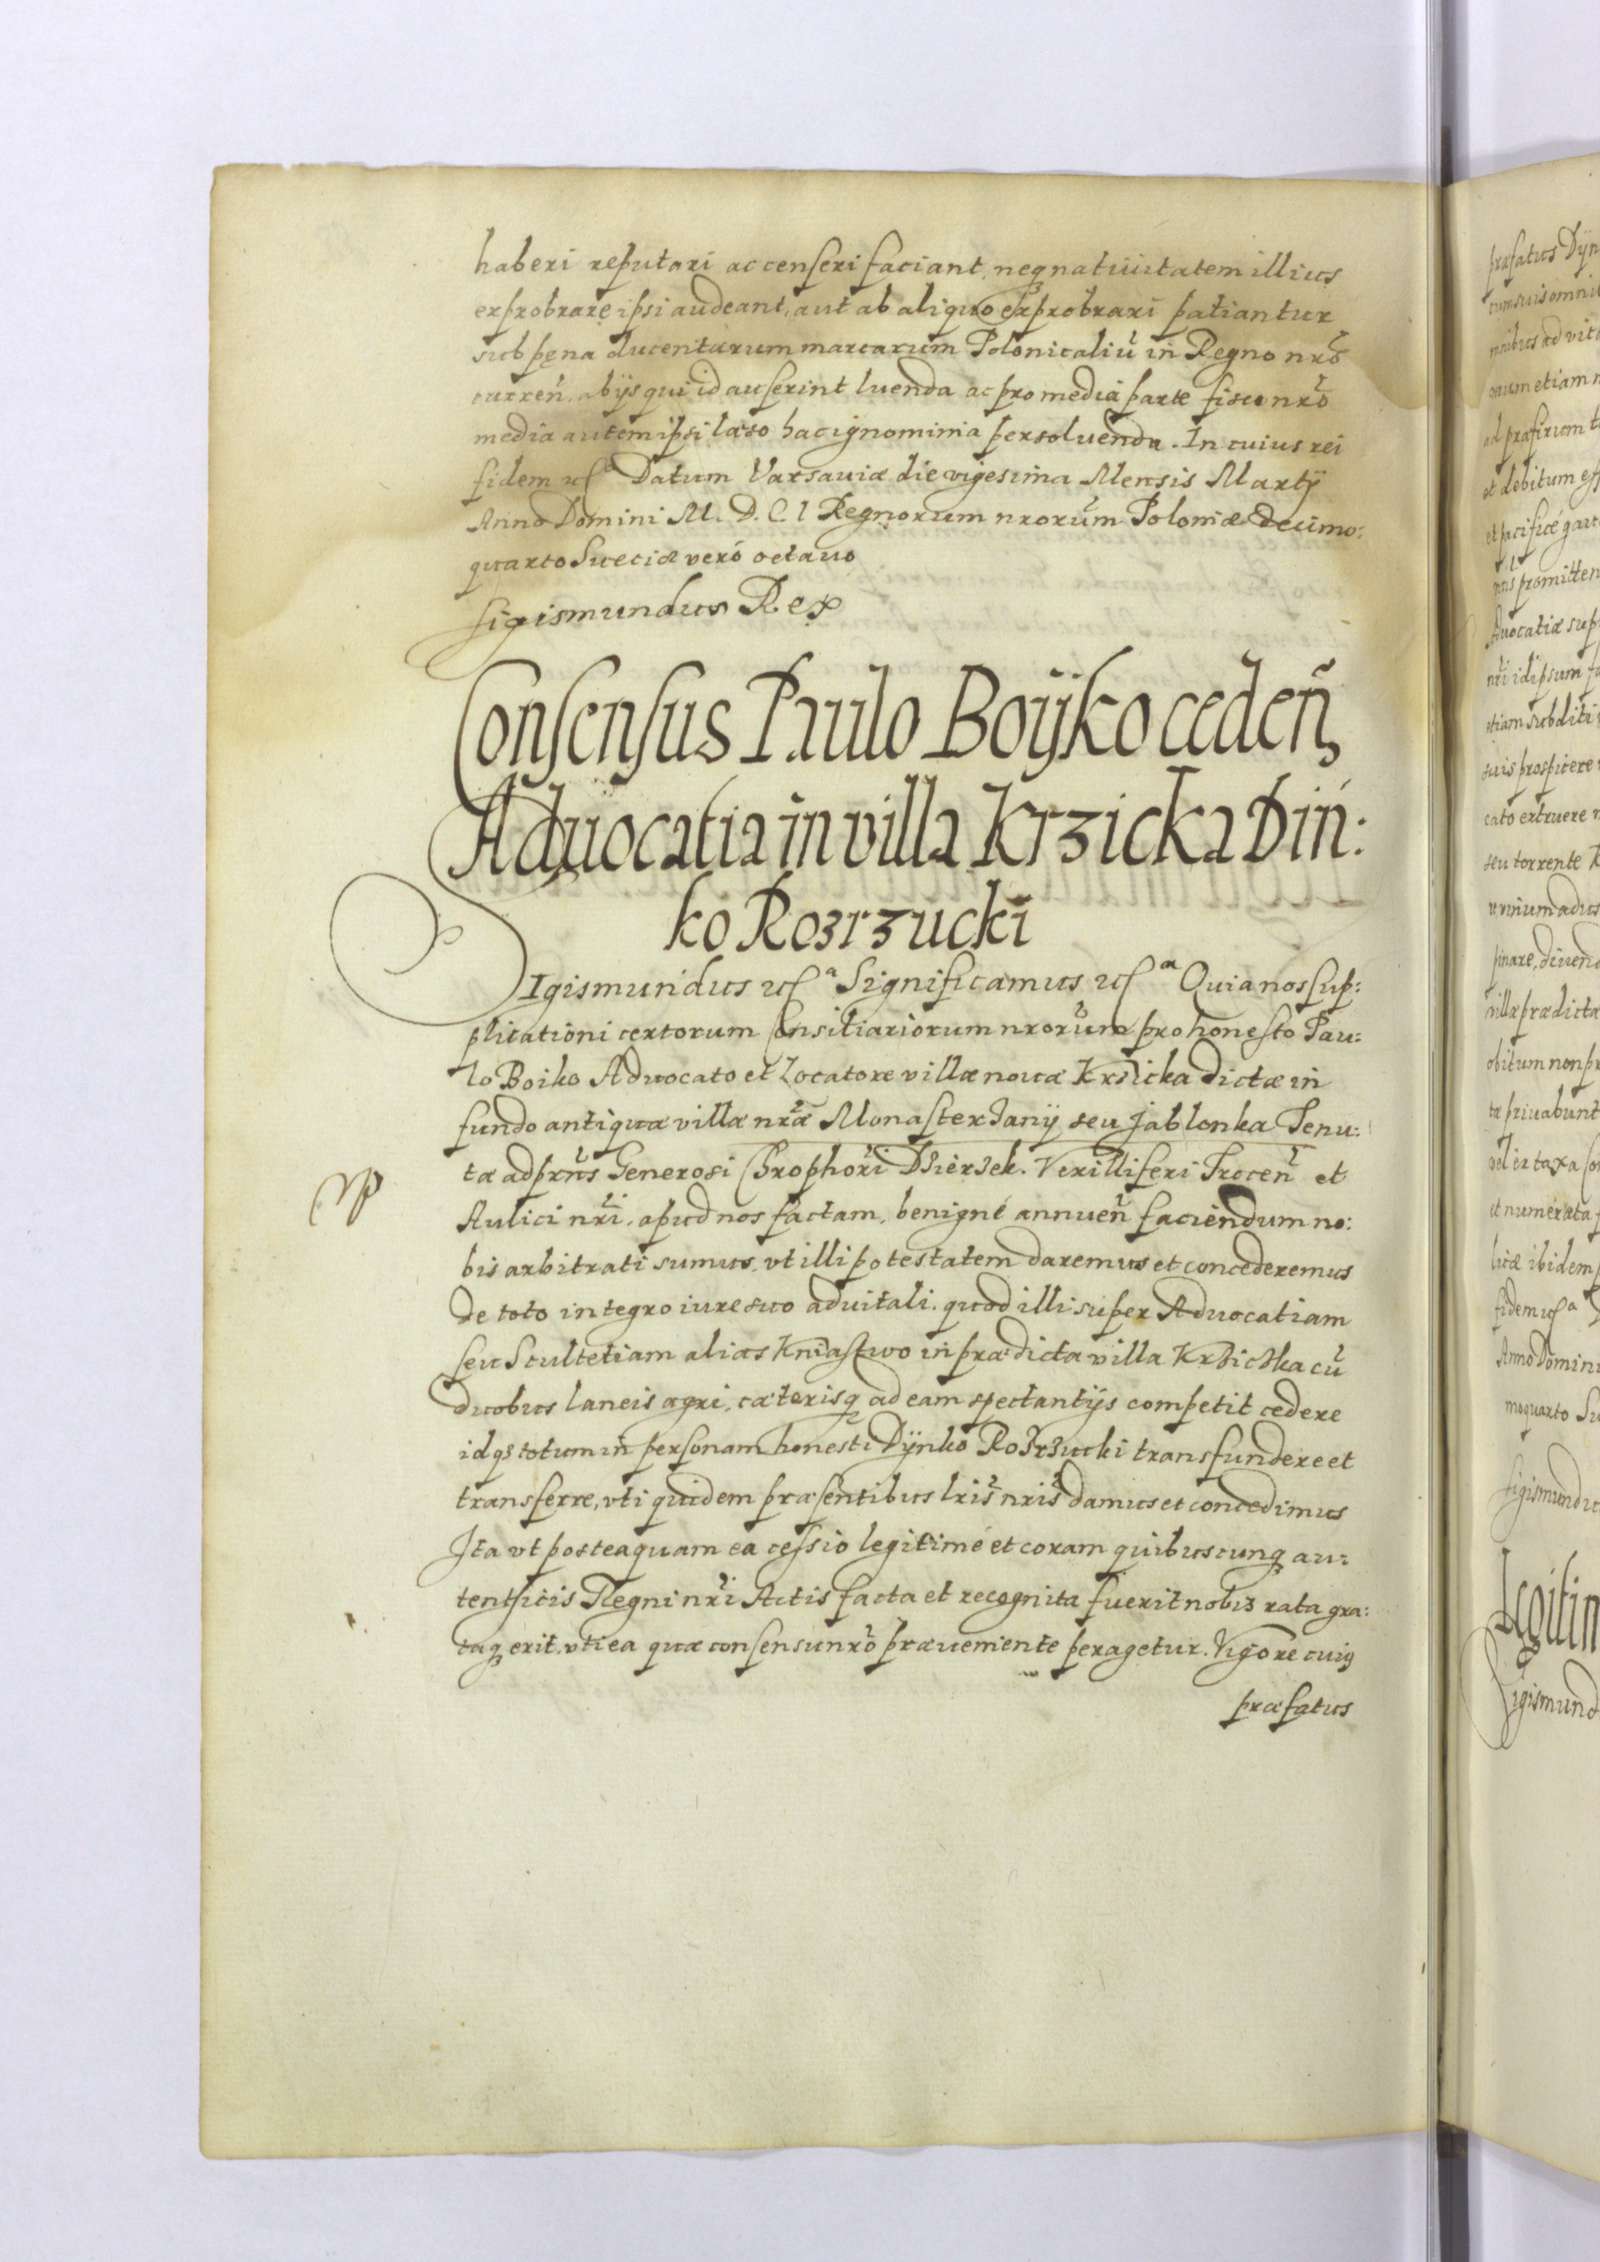 haberi reputari ac censeri faciant, neq nativitatem illius
exprobrare ipsi audeant, aut ab aliquo exprobrari patiantur
sub pęna ducentarum marcarum Polonicaliũ in Regno nrõ
curreñ, abijs qui id auserint luenda ac pro media parte fisco nrõ
media autem ipsi læso hac ignominia persoluenda. In cuius rei
fidem etc Datum Varsauiæ die vigesima Mensis Martij
Anno Domini M. D. C I Regnorum nrorũm Poloniæ decimo:
quarto Sueciæ veró octauo
Sigismundus Rex
Consensus Paulo Boijko cedeñ,
Aduocatia in villa Krzicka Din:
ko Rozrzucki
SIgismundus etc a Significamus etc a Quia nos sup:
plicationi certorum Consiliariorum nrorũm pro honesto Pau:
lo Boiko Aduocato et Locatore villæ nouæ Krzicka dictæ in
fundo antiquæ villæ nrã Monasterzanij seu Jablonka Tenu:
tæ ad prñs Generosi Chrophorĩ Dzierzek. Vexilliferi Troceñ et
Aulici nrĩ, apud nos factam, benigné annueñ faciendum no:
bis arbitrati sumus, vt illi potestatem daremus et concederemus
de toto integro iure suo aduitali, quod illi super Aduocatiam
seu Scultetiam alias Kniastwo in prædicta villa Krziczka cũ
duobus laneis agri, cæterisq ad eam spectantijs competit cedere
idqs totum in personam honesti Dijnko Rozrzucki transfundere et
transferre, vti quidem præsentibus lrĩs nrĩs damus et concedimus
Ita vt posteaquam ea cessio legitimé et coram quibuscunq au:
tenticis Regni nrĩ Actis facta et recognita fuerit nobis rata gra:
taq erit, vti ea quæ consensu nrõ præueniente peragetur. Vigore cuig
præfatus
præfatus Dijn
cum suis omni
ad præsens
et debitum eff
Aduocatiæ sup
nrĩ id ipsum fa
etiam subditi
suis prospicere
cato extruere
seu torrente
villæ prædicta
obitum non
tæ priuabunt
et numerata
licæ ibidem
fidem etc a
Anno Domini
moquarto Su
Sigismundu
Legitim
Sigismund